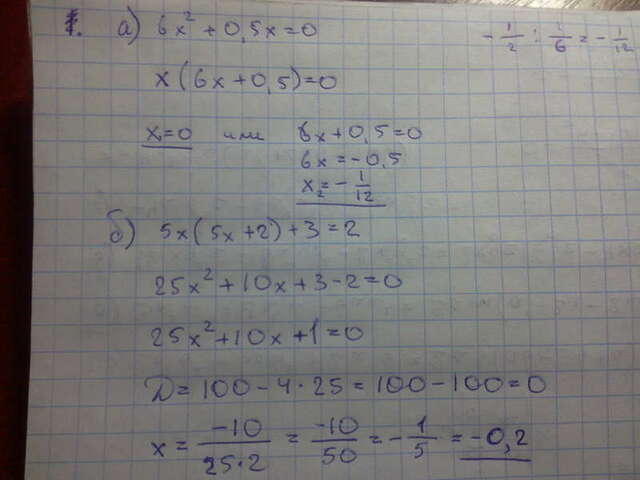 1. а) 6x² + 0,5x = 0
- 1/2 : 1/6 = - 1/12
x(6x + 0,5) = 0
x₁ = 0 или 6x + 0,5 = 0
6x = -0,5
x₂ = - 1/12
б) 5x(5x + 2) + 3 = 2
25x² + 10x + 3 - 2 = 0
25x² + 10x + 1 = 0
D = 100 - 4·25 = 100 - 100 = 0
x = -10/25·2 = -10/50 = - 1/5 = -0,2